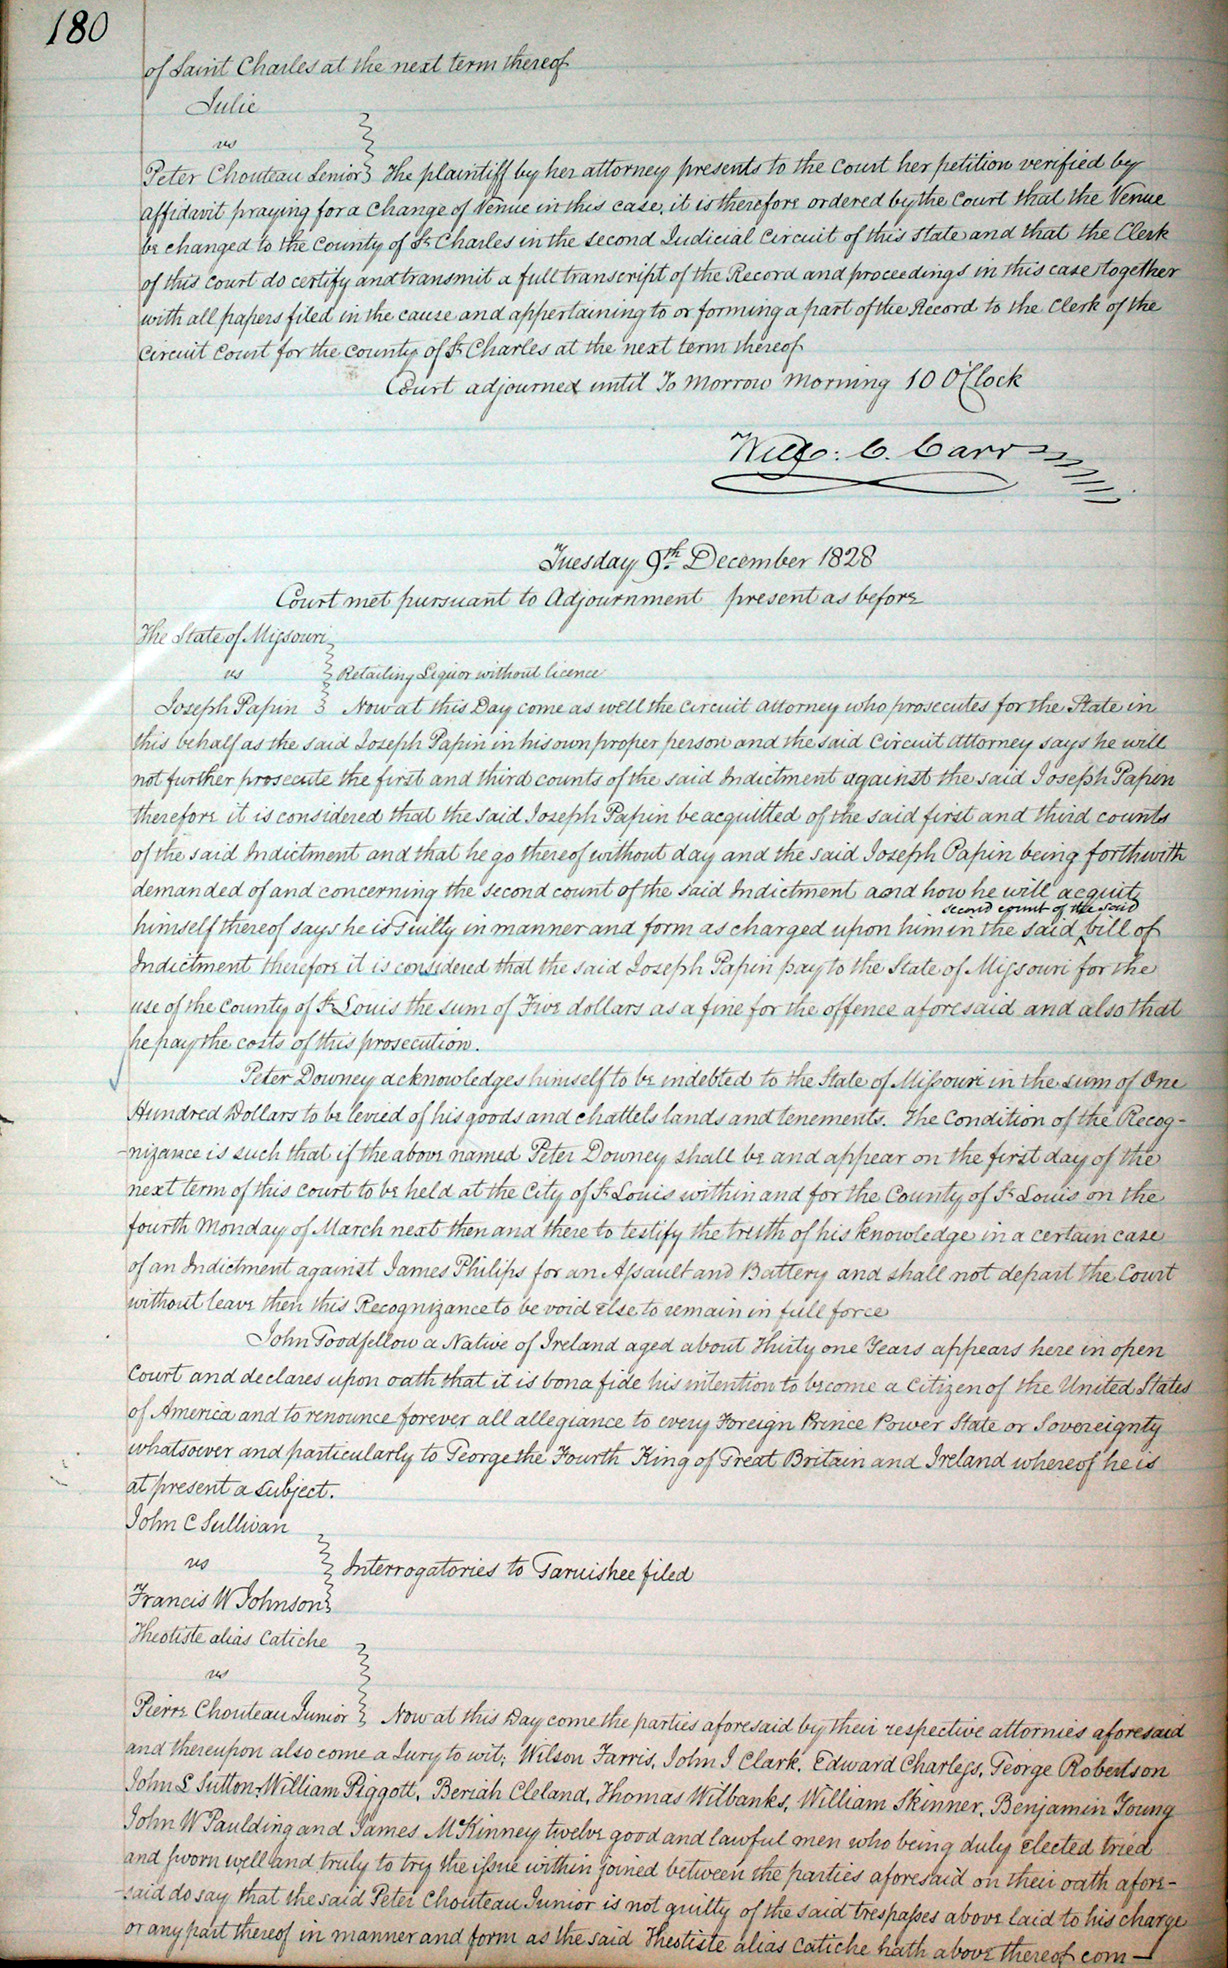 180
of Saint Charles at the next term thereof
Julie
vs
Peter Chouteau Senior The plaintiff by her attorney presents to the Court her petition verified by
affidavit praying for a Change of Venue in this case, it is therefore ordered by the Court that the Venue
be changed to the County of St Charles in the second Judicial Circuit of this State and that the Clerk
of this Court do certify and transmit a full transcript of the Record and proceedings in this case together
with all papers filed in the cause and appertaining to or forming a part of the Record to the Clerk of the
Circuit Court for the County of St Charles at the next term thereof
Court adjourned until To Morrow Morning 10 O'Clock
Will: C. Carr
Tuesday 9th December 1828
Court met pursuant to Adjournment present as before
The State of Missouri
vs
Retailing Liquor without licence
Joseph Papin Now at this Day come as well the Circuit Attorney who prosecutes for the State in
this behalf as the said Joseph Papin in his own proper person and the said Circuit Attorney says he will
not further prosecute the first and third counts of the said Indictment against the said Joseph Papin
therefore it is considered that the said Joseph Papin be acquitted of the said first and third counts
of the said Indictment and that he go thereof without day and the said Joseph Papin being forthwith
demanded of and concerning the second count of the said Indictment and how he will acquit
second count of the said
himself thereof says he is Guilty in manner and form as charged upon him in the said ^ bill of
Indictment therefore it is considered that the said Joseph Papin pay to the State of Missouri for the
use of the County of St Louis the sum of Five dollars as a fine for the offence aforesaid and also that
he pay the costs of this prosecution.
Peter Downey acknowledges himself to be indebted to the State of Missouri in the sum of One
Hundred Dollars to be levied of his goods and chattels lands and tenements. The Condition of the Recog-
-nizance is such that if the above named Peter Downey shall be and appear on the first day of the
next term of this court to be held at the City of St Louis within and for the County of St Louis on the
fourth Monday of March next then and there to testify the truth of his knowledge in a certain case
of an Indictment against James Philips for an Assault and Battery and shall not depart the Court
without leave then this Recognizance to be void else to remain in full force
John Goodfellow a Native of Ireland aged about Thirty one Years appears here in open
Court and declares upon oath that it is bona fide his intention to become a Citizen of the United States
of America and to renounce forever all allegiance to every Foreign Prince Power State or Sovereignty
whatsoever and particularly to George the Fourth King of Great Britain and Ireland whereof he is
at present a subject.
John C Sullivan
vs
Interrogatories to Garnishee filed
Francis W Johnson
Theotiste alias Catiche
vs
Pierre Chouteau Junior Now at this Day come the parties aforesaid by their respective attornies aforesaid
and thereupon also come a Jury to wit; Wilson Farris, John J Clark, Edward Charless, George Robertson
John L Sutton, William Piggott, Beriah Cleland, Thomas Wilbanks, William Skinner, Benjamin Young
John W Paulding and James McKinney twelve good and lawful men who being duly elected tried
and sworn well and truly to try the issue within joined between the parties aforesaid on their oath afore-
-said do say that the said Peter Chouteau Junior is not guilty of the said trespasses above laid to his charge
or any part thereof in manner and form as the said Theotiste alias Catiche hath above thereof com-